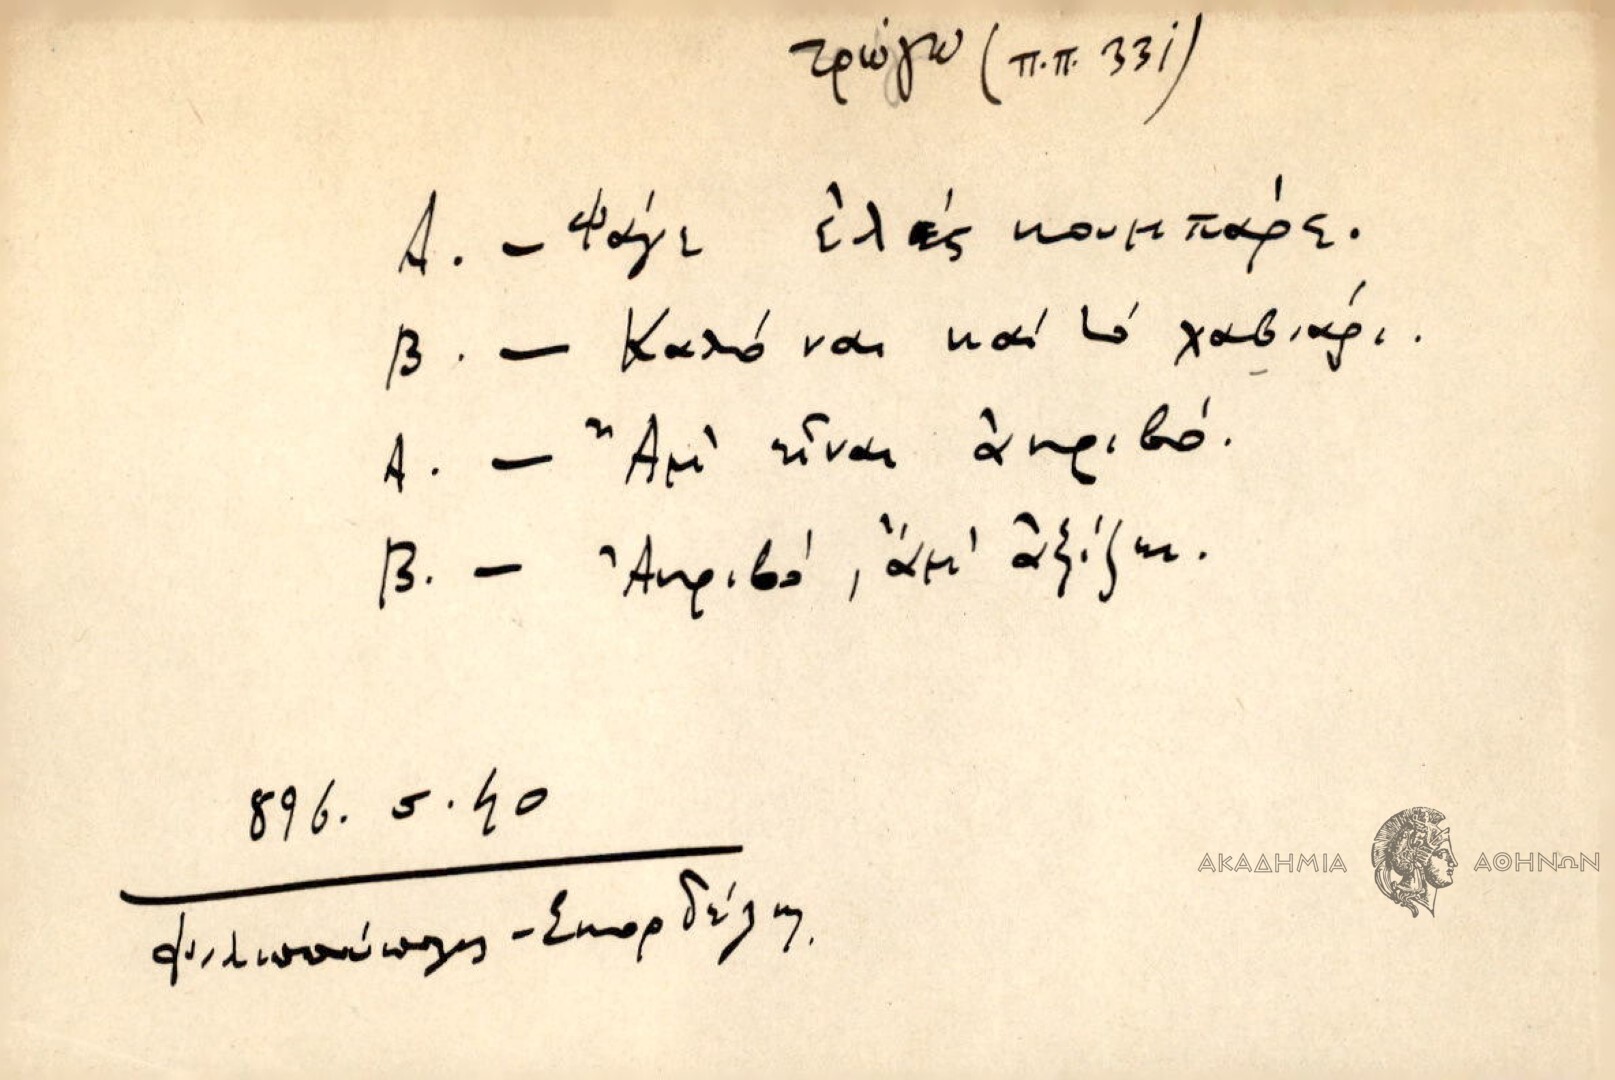 τρώγω (π.π. 331)
Α. - Φάγε ἐλιές κουμπάρε.
Β. - Καλό ναι καί τό χαβιάρι.
Α. - Ἀμὶ εἶναι ἀκριβό.
Β. - Ἀκριβό, ἀμὶ ἀξίζει.
896. σ. 40
Φιλιππούπολις - Σκορδέλης.
ΑΚΑΔΗΜΙΑ ΑΘΗΝΩΝ